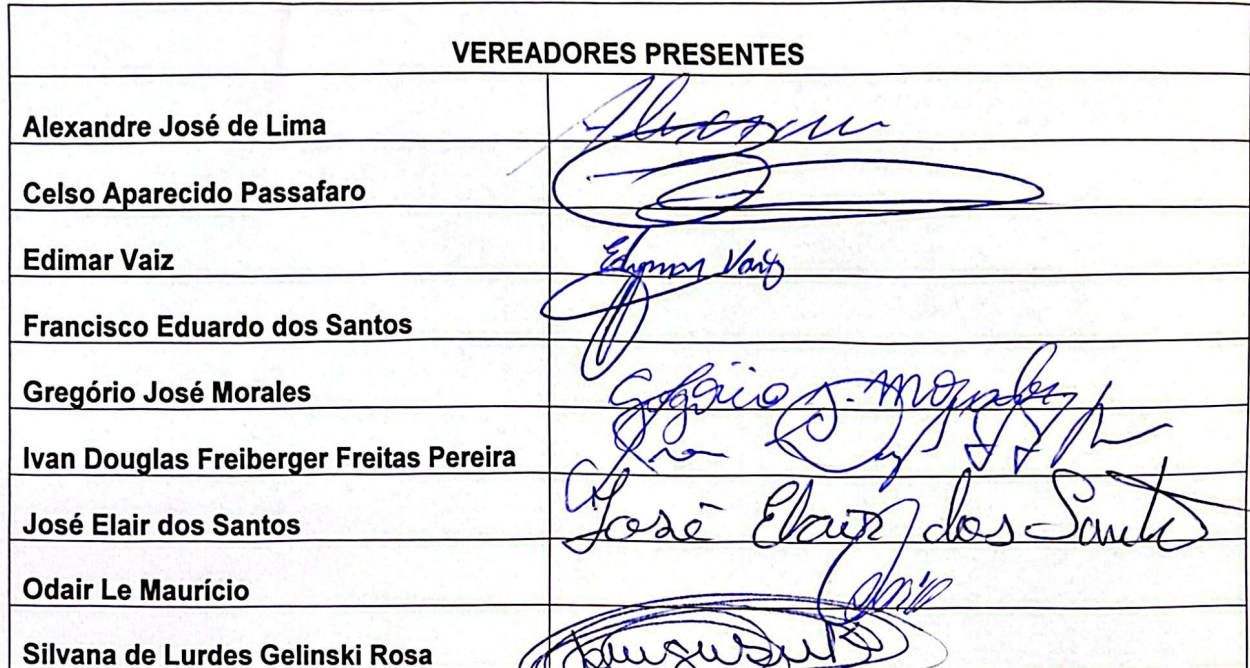 VEREADORES PRESENTES
Alexandre José de Lima
Celso Aparecido Passafaro
Edimar Vaiz Edymar Vaiz
Francisco Eduardo dos Santos
Gregório José Morales Gregório J. Morales
Ivan Douglas Freiberger Freitas Pereira
José Elair dos Santos José Elair dos Santos
Odair Le Maurício
Silvana de Lurdes Gelinski Rosa